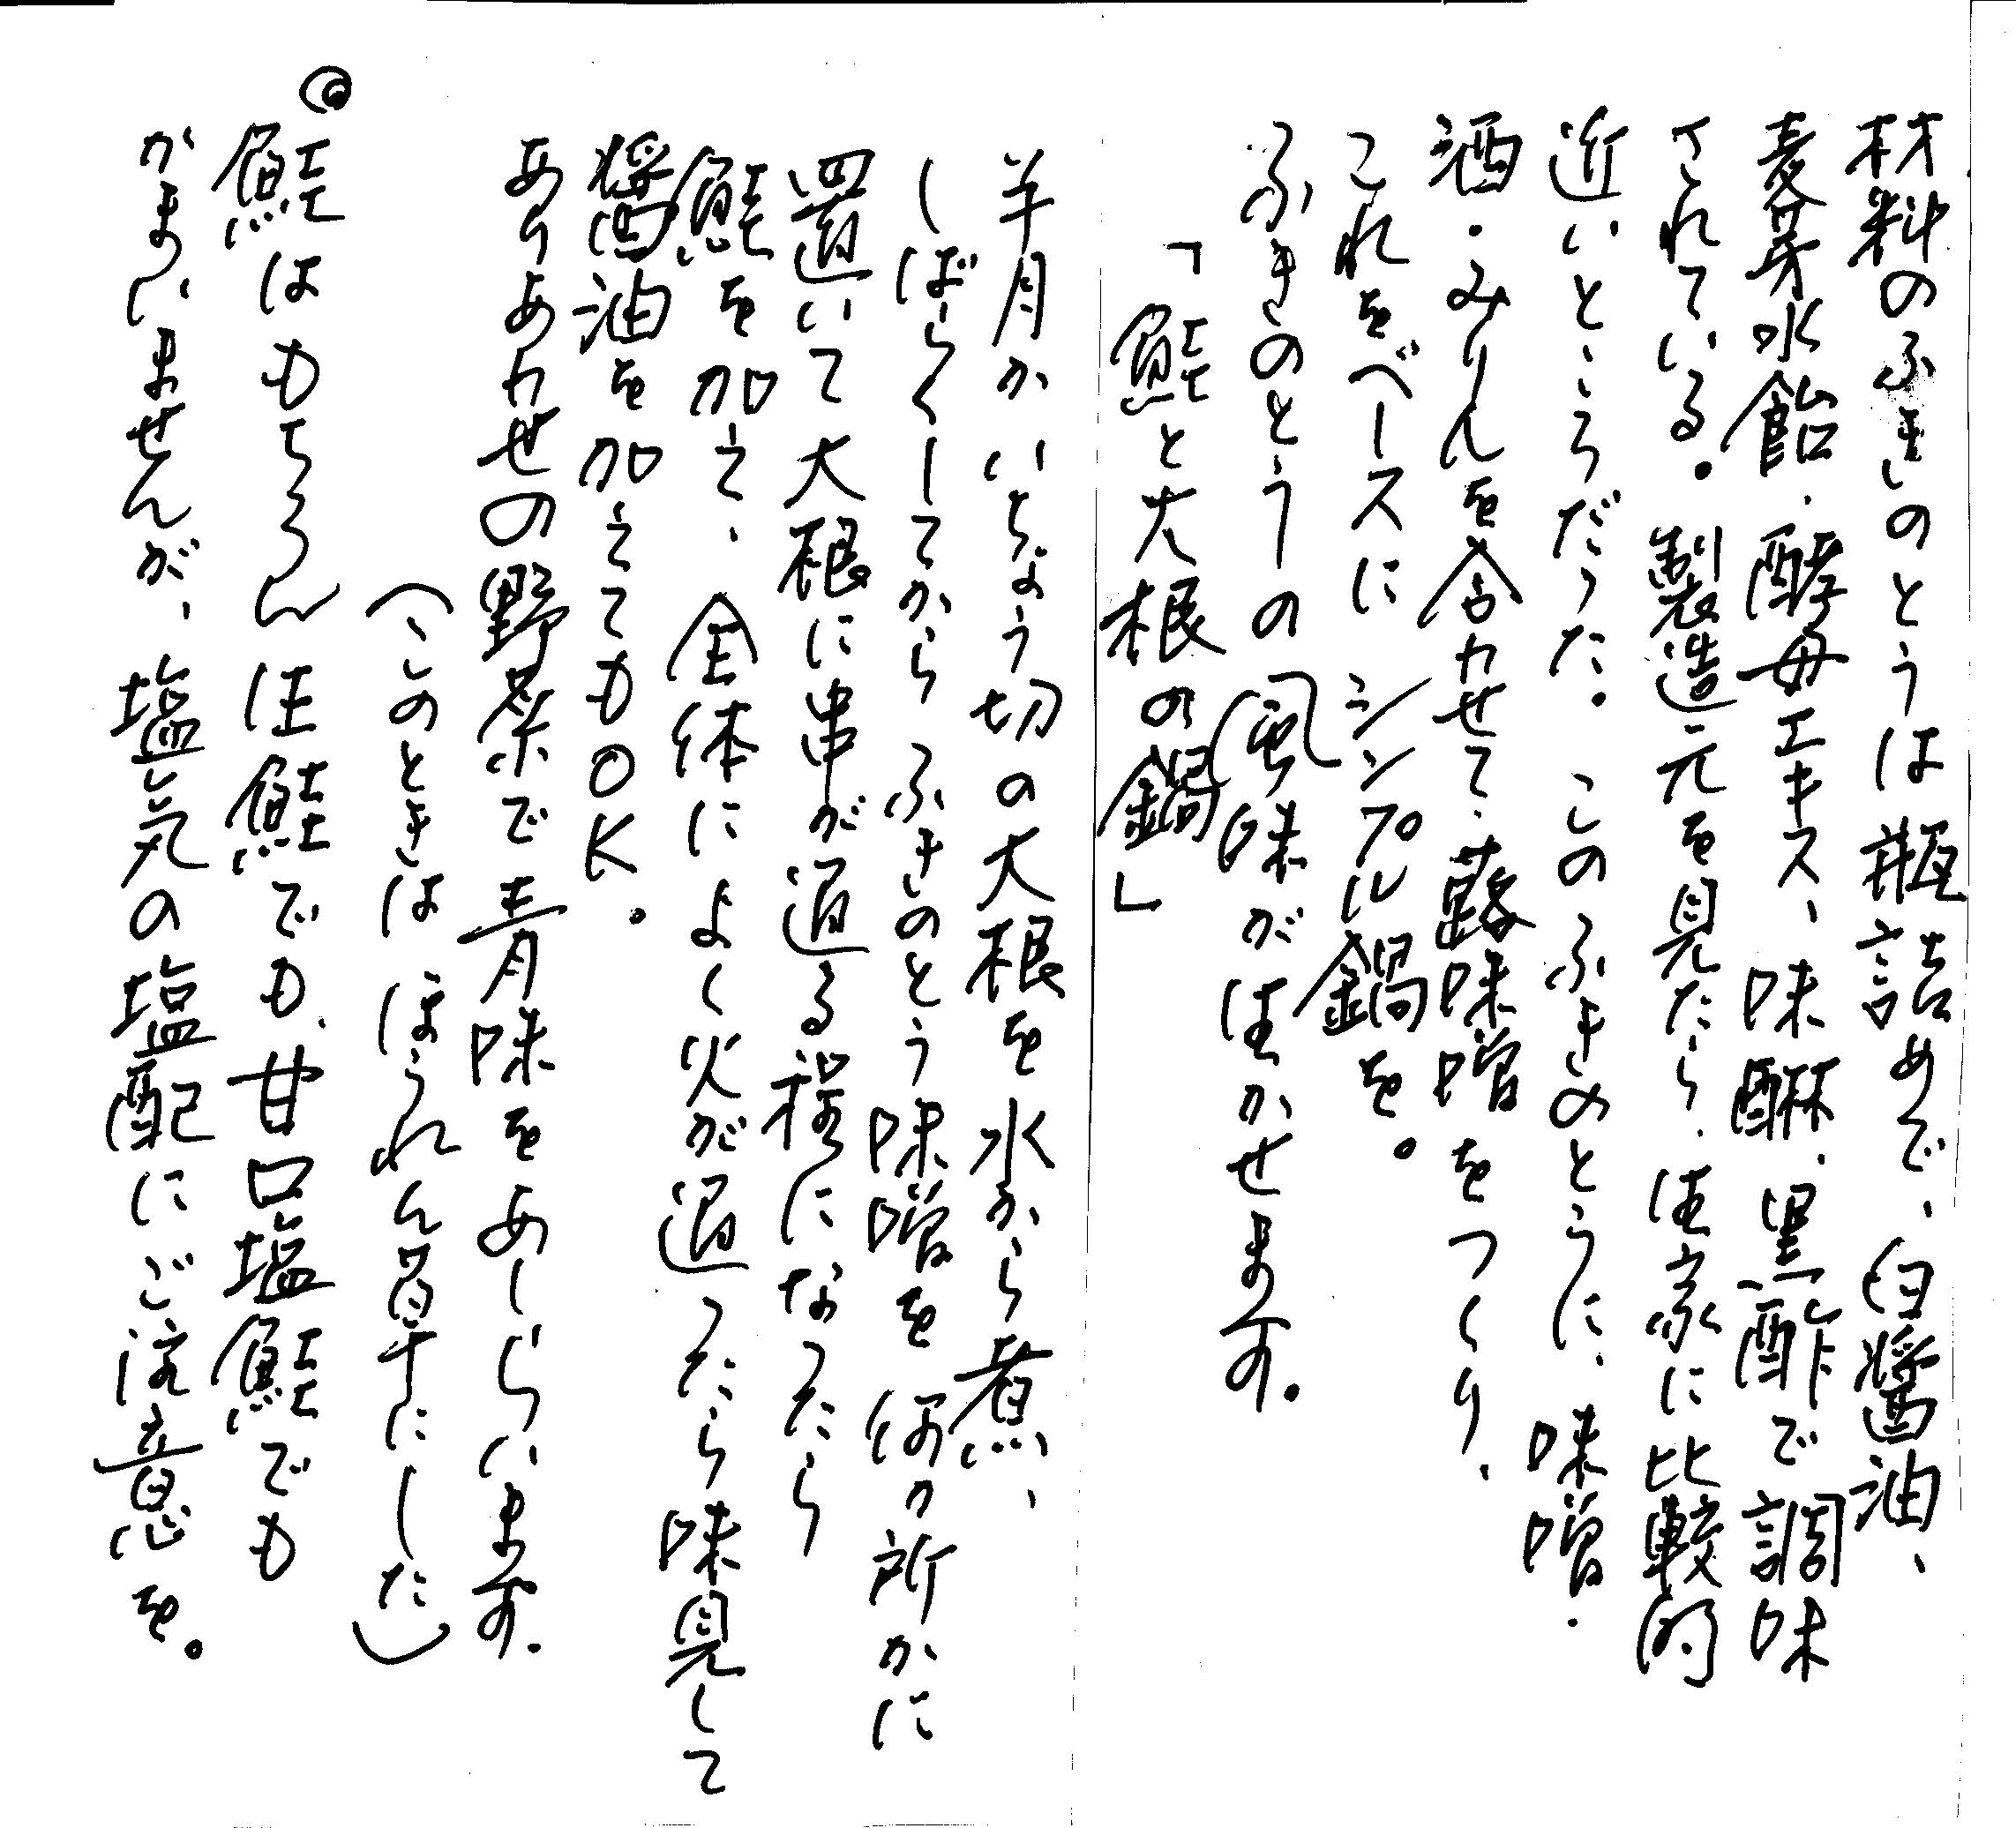 材料のふきのとうは瓶詰めで、白醤油、
麦芽水飴、酵母エキス、味醂、黒酢で調味
されている。製造元を見たら、住家に比較的
近いところだった。このふきのとうに、味噌・
酒・みりんを合わせて、蕗味噌をつくり、
これをベースにシンプル鍋を。
ふきのとうの風味が生かせます。
「鮭と大根の鍋」
半月かいちょう切の大根を水から煮、
しばらくしてからふきのとう味噌を何カ所かに
置いて大根に串が通る程になったら
鮭を加え、全体によく火が通ったら味見して
醤油を加えてもOK。
ありあわせの野菜で青味をあしらいます。
(このときはほうれん草にした)
◎
鮭はもちろん生鮭でも、甘口塩鮭でも
かまいませんが、塩気の塩配にご注意を。